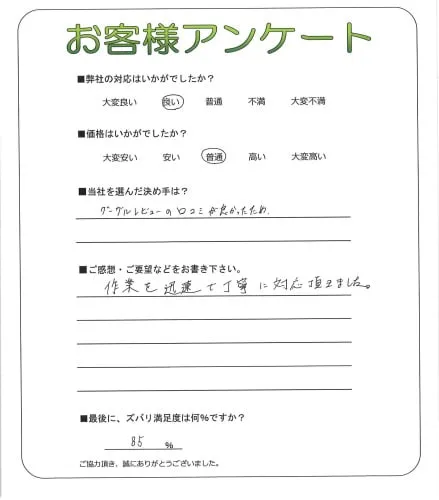 お客様アンケート
■弊社の対応はいかがでしたか?
大変良い 良い 普通 不満 大変不満
■価格はいかがでしたか?
大変安い 安い 普通 高い 大変高い
■当社を選んだ決め手は?
グーグルレビューの口コミが良かったため.
■ご感想・ご要望などをお書き下さい。
作業を迅速で丁寧に対応頂きました。
■最後に、ズバリ満足度は何%ですか?
85 %
ご協力頂き、誠にありがとうございました。